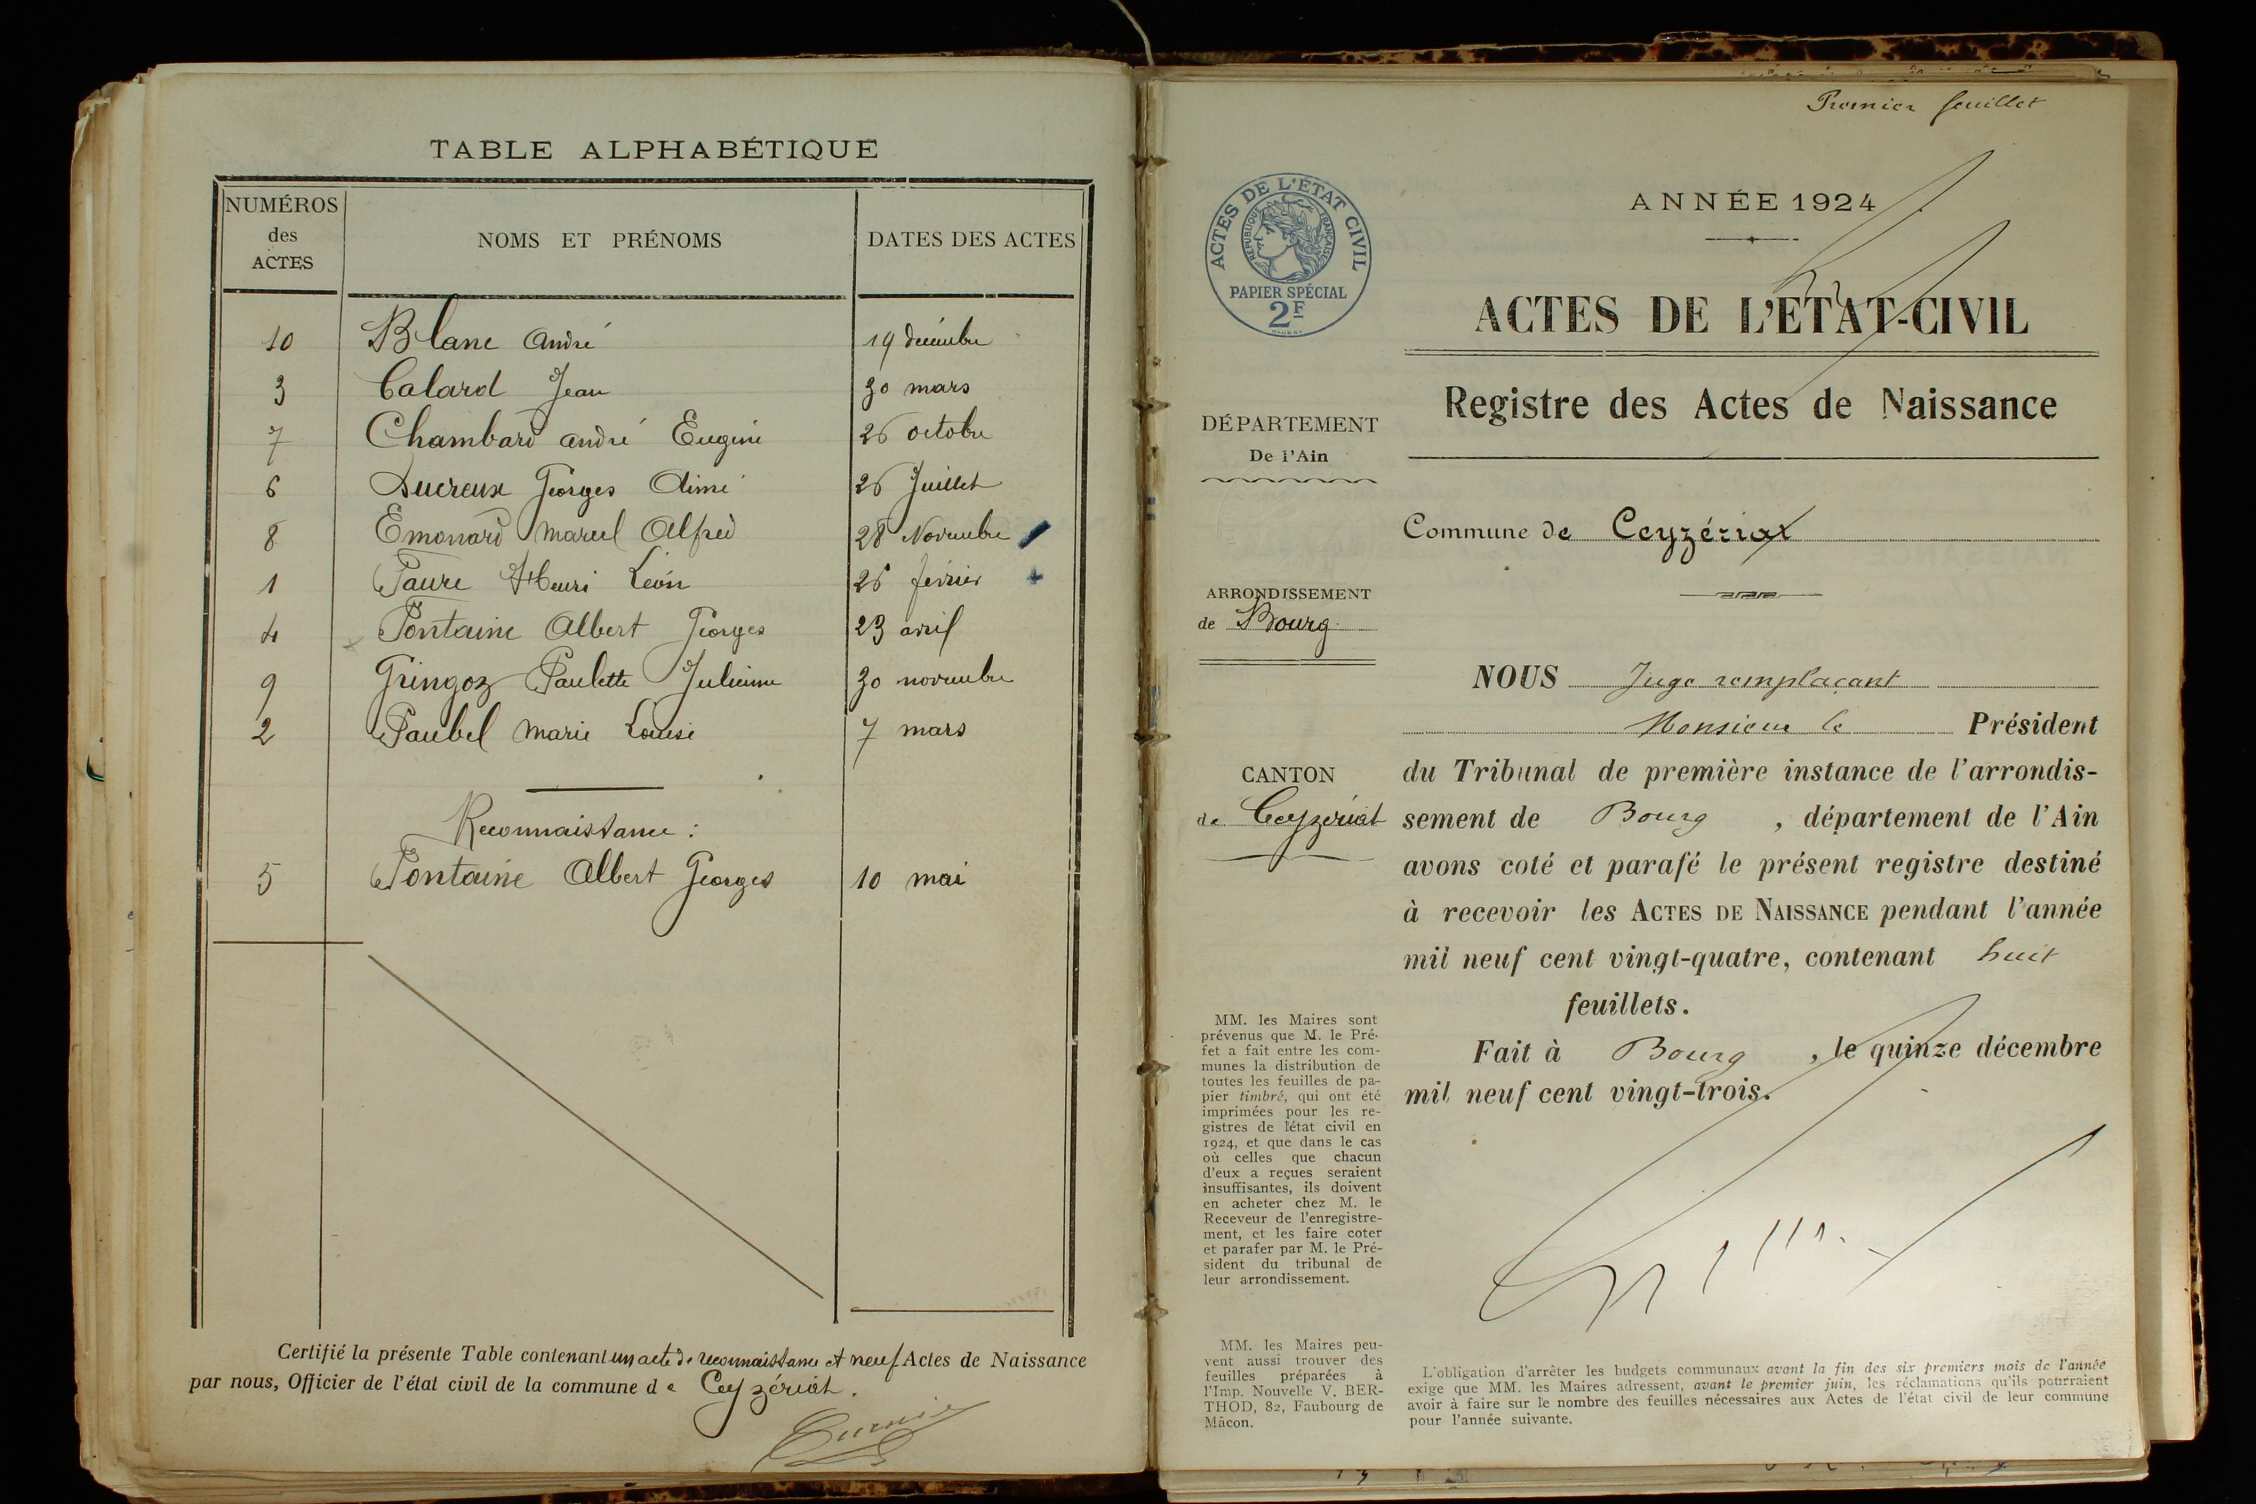 TABLE ALPHABÉTIQUE
NUMÉROS des ACTES NOMS ET PRÉNOMS DATES DES ACTES
10 Blanc André 19 décembre
3 Calard Jean 30 mars
7 Chambard André Eugène 26 octobre
6 Ducreux Georges Aimé 26 Juillet
8 Emonard Marcel Alfred 28 Novembre
1 Faure Henri Léon 26 février
4 Fontaine Albert Georges 23 avril
9 Gringoz Paulette Julienne 30 novembre
2 Paubel Marie Louise 7 mars
Reconnaissance :
5 Fontaine Albert Georges 10 mai
Certifié la présente Table contenant un acte de reconnaissance et neuf Actes de Naissance
par nous, Officier de l'état civil de la commune de Ceyzériat.
Premier feuillet
ACTES DE L'ÉTAT CIVIL
RÉPUBLIQUE FRANÇAISE
PAPIER SPÉCIAL
2F
DÉPARTEMENT
De l'Ain
ARRONDISSEMENT
de Bourg
CANTON
de Ceyzériat
MM. les Maires sont
prévenus que M. le Pré-
fet a fait entre les com-
munes la distribution de
toutes les feuilles de pa-
pier timbré, qui ont été
imprimées pour les re-
gistres de l'état civil en
1924, et que dans le cas
où celles que chacun
d'eux a reçues seraient
insuffisantes, ils doivent
en acheter chez M. le
Receveur de l'enregistre-
ment, et les faire coter
et parafer par M. le Pré-
sident du tribunal de
leur arrondissement.
MM. les Maires peu-
vent aussi trouver des
feuilles préparées à
l'Imp. Nouvelle V. BER-
THOD, 82, Faubourg de
Mâcon.
ANNÉE 1924
ACTES DE L'ETAT-CIVIL
Registre des Actes de Naissance
Commune de Ceyzériat
NOUS Juge remplaçant
Monsieur le Président
du Tribunal de première instance de l'arrondis-
sement de Bourg , département de l'Ain
avons coté et parafé le présent registre destiné
à recevoir les ACTES DE NAISSANCE pendant l'année
mil neuf cent vingt-quatre, contenant huit
feuillets.
Fait à Bourg , le quinze décembre
mil neuf cent vingt-trois.
L'obligation d'arrêter les budgets communaux avant la fin des six premiers mois de l'année
exige que MM. les Maires adressent, avant le premier juin, les réclamations qu'ils pourraient
avoir à faire sur le nombre des feuilles nécessaires aux Actes de l'état civil de leur commune
pour l'année suivante.